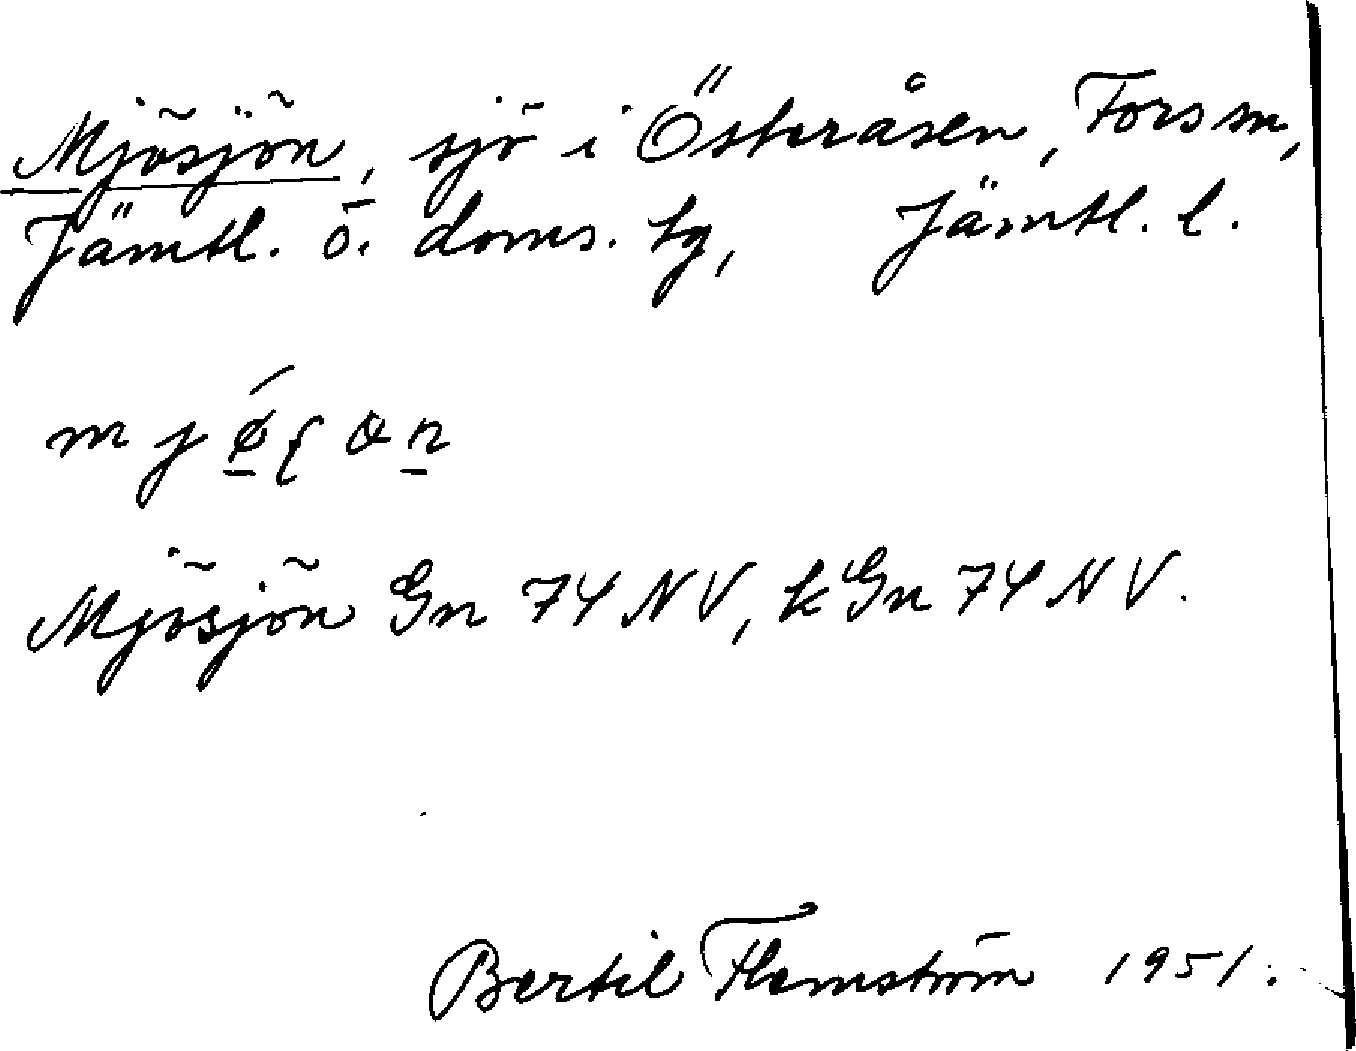 Mjösjön, sjö i Österåsen, Fors sn,
Jämtl. ö. doms. tg, Jämtl. l.
Mjösjön Gn 74 NV, kGn 74 NV.
Bertil Flemström 1951.